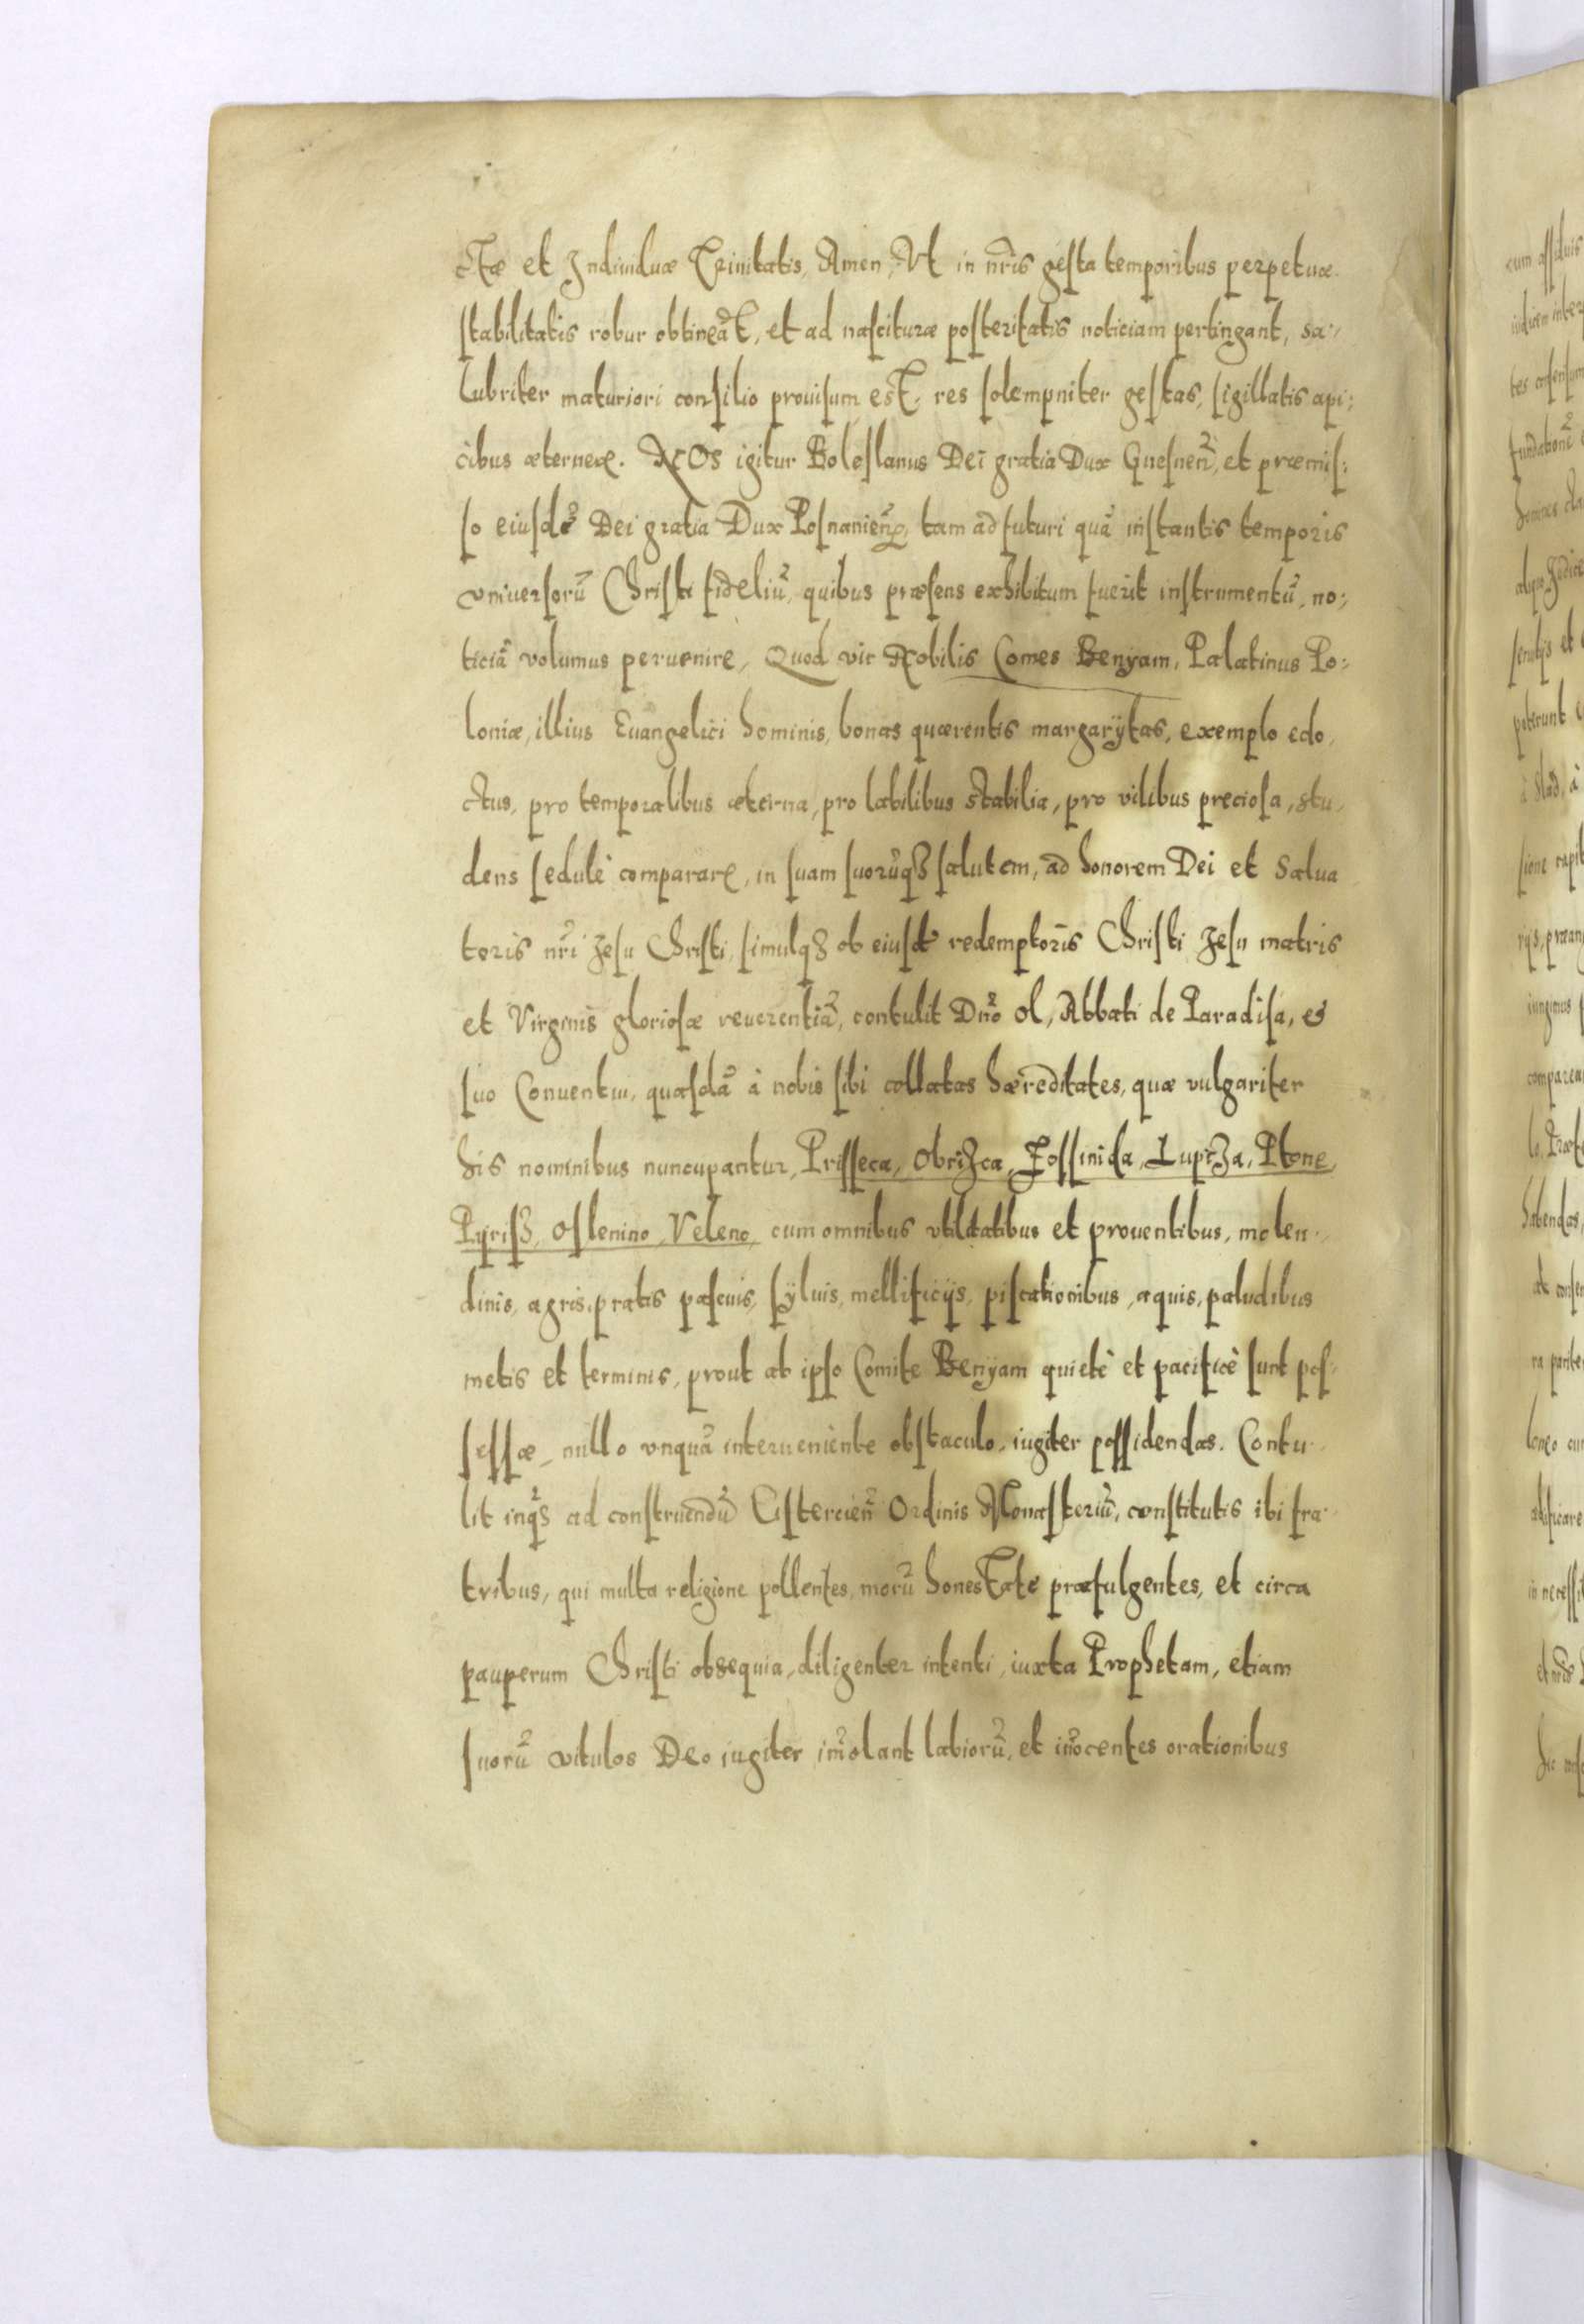 ctæ et Indiuiduæ Trinitatis, Amen, Vt in nr̃is gesta temporibus perpetuæ
stabilitatis robur obtineãt, et ad nascituræ posteritatis noticiam pertingant, sa:
lubriter maturiori consilio prouisum est, res solempniter gestas, sigillatis api:
cibus æternare. NOs igitur Boleslaus Dei gratia Dux Gnesneñ, et præmis:
so eiusdẽ Dei gratia Dux Posnanieñ, tam ad futuri quã instantis temporis
vniuersorũ Christi fideliũ, quibus præsens exhibitum fuerit instrumentũ, no:
ticiã volumus peruenire, Quod vir Nobilis Comes Benyam, Palatinus Po:
loniæ, illius Euangelici hominis, bonas quærentis margarÿtas, exemplo edo,
ctus, pro temporalibus æterna, pro labilibus stabilia, pro vilibus preciosa, stu,
dens sedulè comparare, in suam suorũqȝ salutem, ad honorem Dei et Salua
toris nr̃i Jesu Christi, simulqȝ ob eiusdẽ redemptoris Christi Jesu matris
et Virginis gloriosæ reuerentiã, contulit Dñõ Ol, Abbati de Paradisa, &
suo Conuentui, quasdã à nobis sibi collatas hæreditates, quæ vulgariter
his nominibus nuncupantur, Prisseca, Obriȝca, Gossinida, Lupiȝa, Ptone,
Pyrisȝ, Oslenino, Veleno, cum omnibus vtilitatibus et prouentibus, molen:
dinis, agris, pratis pascuis, sÿluis, mellificijs, piscationibus, aquis, paludibus
metis et terminis, prout ab ipso Comite Benÿam quietè et pacificè sunt pos:
sessæ, nullo vnquã interueniente obstaculo, iugiter possidendas. Contu:
lit inqȝ ad construendũ Cistercieñ Ordinis Monasteriũ, constitutis ibi fra:
tribus, qui multa religione pollentes, morũ honestate præfulgentes, et circa
pauperum Christi obsequia, diligenter intenti, iuxta Prophetam, etiam
suorũ vitulos Deo iugiter im̃olant labiorũ, et iñocentes orationibus